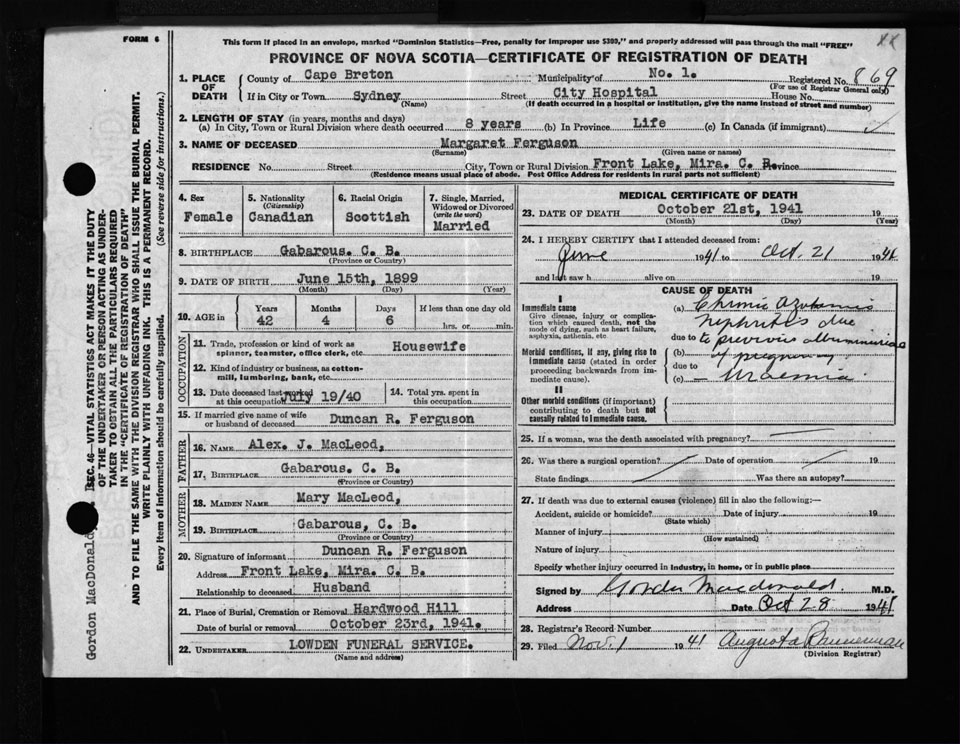 FORM 6
This form if placed in an envelope, marked "Dominion Statistics—Free, penalty for improper use $300," and properly addressed will pass through the mail "FREE"
XX
PROVINCE OF NOVA SCOTIA—CERTIFICATE OF REGISTRATION OF DEATH
1. PLACE OF DEATH
County of Cape Breton Municipality of No. 1. Registered No. 869
(For use of Registrar General only)
If in City or Town Sydney Street City Hospital House No.
(Name) (If death occurred in a hospital or institution, give the name instead of street and number)
2. LENGTH OF STAY (in years, months and days)
(a) In City, Town or Rural Division where death occurred 8 years (b) In Province Life (c) In Canada (if immigrant)
3. NAME OF DECEASED Margaret Ferguson
(Surname) (Given name or names)
RESIDENCE No. Street City, Town or Rural Division Front Lake, Mira. C. B. Province
(Residence means usual place of abode. Post Office Address for residents in rural parts not sufficient)
4. Sex
Female
5. Nationality
(Citizenship)
Canadian
6. Racial Origin
Scottish
7. Single, Married,
Widowed or Divorced
(write the word)
Married
8. BIRTHPLACE Gabarous. C. B.
(Province or Country)
9. DATE OF BIRTH June 15th, 1899
(Month) (Day) (Year)
10. AGE in
Years Months Days If less than one day
42 4 6 hrs. or min.
OCCUPATION
11. Trade, profession or kind of work as Housewife
spinner, teamster, office clerk, etc.
12. Kind of industry or business, as cotton-
mill, lumbering, bank, etc.
13. Date deceased last worked
at this occupation July 19/40
14. Total yrs. spent in
this occupation
15. If married give name of wife
or husband of deceased Duncan R. Ferguson
FATHER
16. NAME Alex. J. MacLeod,
17. BIRTHPLACE Gabarous. C. B.
(Province or Country)
MOTHER
18. MAIDEN NAME Mary MacLeod,
19. BIRTHPLACE Gabarous, C. B.
(Province or Country)
20. Signature of informant Duncan R. Ferguson
Address Front Lake, Mira. C. B.
Relationship to deceased Husband
21. Place of Burial, Cremation or Removal Hardwood Hill
Date of burial or removal October 23rd, 1941.
22. UNDERTAKER LOWDEN FUNERAL SERVICE.
(Name and address)
MEDICAL CERTIFICATE OF DEATH
23. DATE OF DEATH October 21st, 1941 19
(Month) (Day) (Year)
24. I HEREBY CERTIFY that I attended deceased from:
June 1941 to Oct. 21 1941
and last saw h alive on 19
CAUSE OF DEATH
I
Immediate cause
Give disease, injury or complica-
tion which caused death, not the
mode of dying, such as heart failure,
asphyxia, asthenia, etc
Morbid conditions, if any, giving rise to
immediate cause (stated in order
proceeding backwards from im-
mediate cause).
II
Other morbid conditions (if important)
contributing to death but not
causally related to immediate cause.
(a) Chronic
Nephritis due
due to to previous
(b) of pregnancy
due to
(c) — Uraemia
25. If a woman, was the death associated with pregnancy?
26. Was there a surgical operation? Date of operation 19
State findings Was there an autopsy?
27. If death was due to external causes (violence) fill in also the following:—
Accident, suicide or homicide? Date of injury 19
(State which)
Manner of injury
(How sustained)
Nature of injury
Specify whether injury occurred in industry, in home, or in public place
Signed by Gordon Macdonald M.D.
Address Date Oct 28 1941
28. Registrar's Record Number
29. Filed Nov. 1 1941 Augusta Bannerman
(Division Registrar)
Gordon MacDonald
SEC. 46—VITAL STATISTICS ACT MAKES IT THE DUTY
OF THE UNDERTAKER OR PERSON ACTING AS UNDER-
TAKER TO OBTAIN ALL THE PARTICULARS REQUIRED
IN THE "CERTIFICATE OF REGISTRATION OF DEATH"
AND TO FILE THE SAME WITH THE DIVISION REGISTRAR WHO SHALL ISSUE THE BURIAL PERMIT.
WRITE PLAINLY WITH UNFADING INK. THIS IS A PERMANENT RECORD.
Every item of information should be carefully supplied. (See reverse side for instructions.)